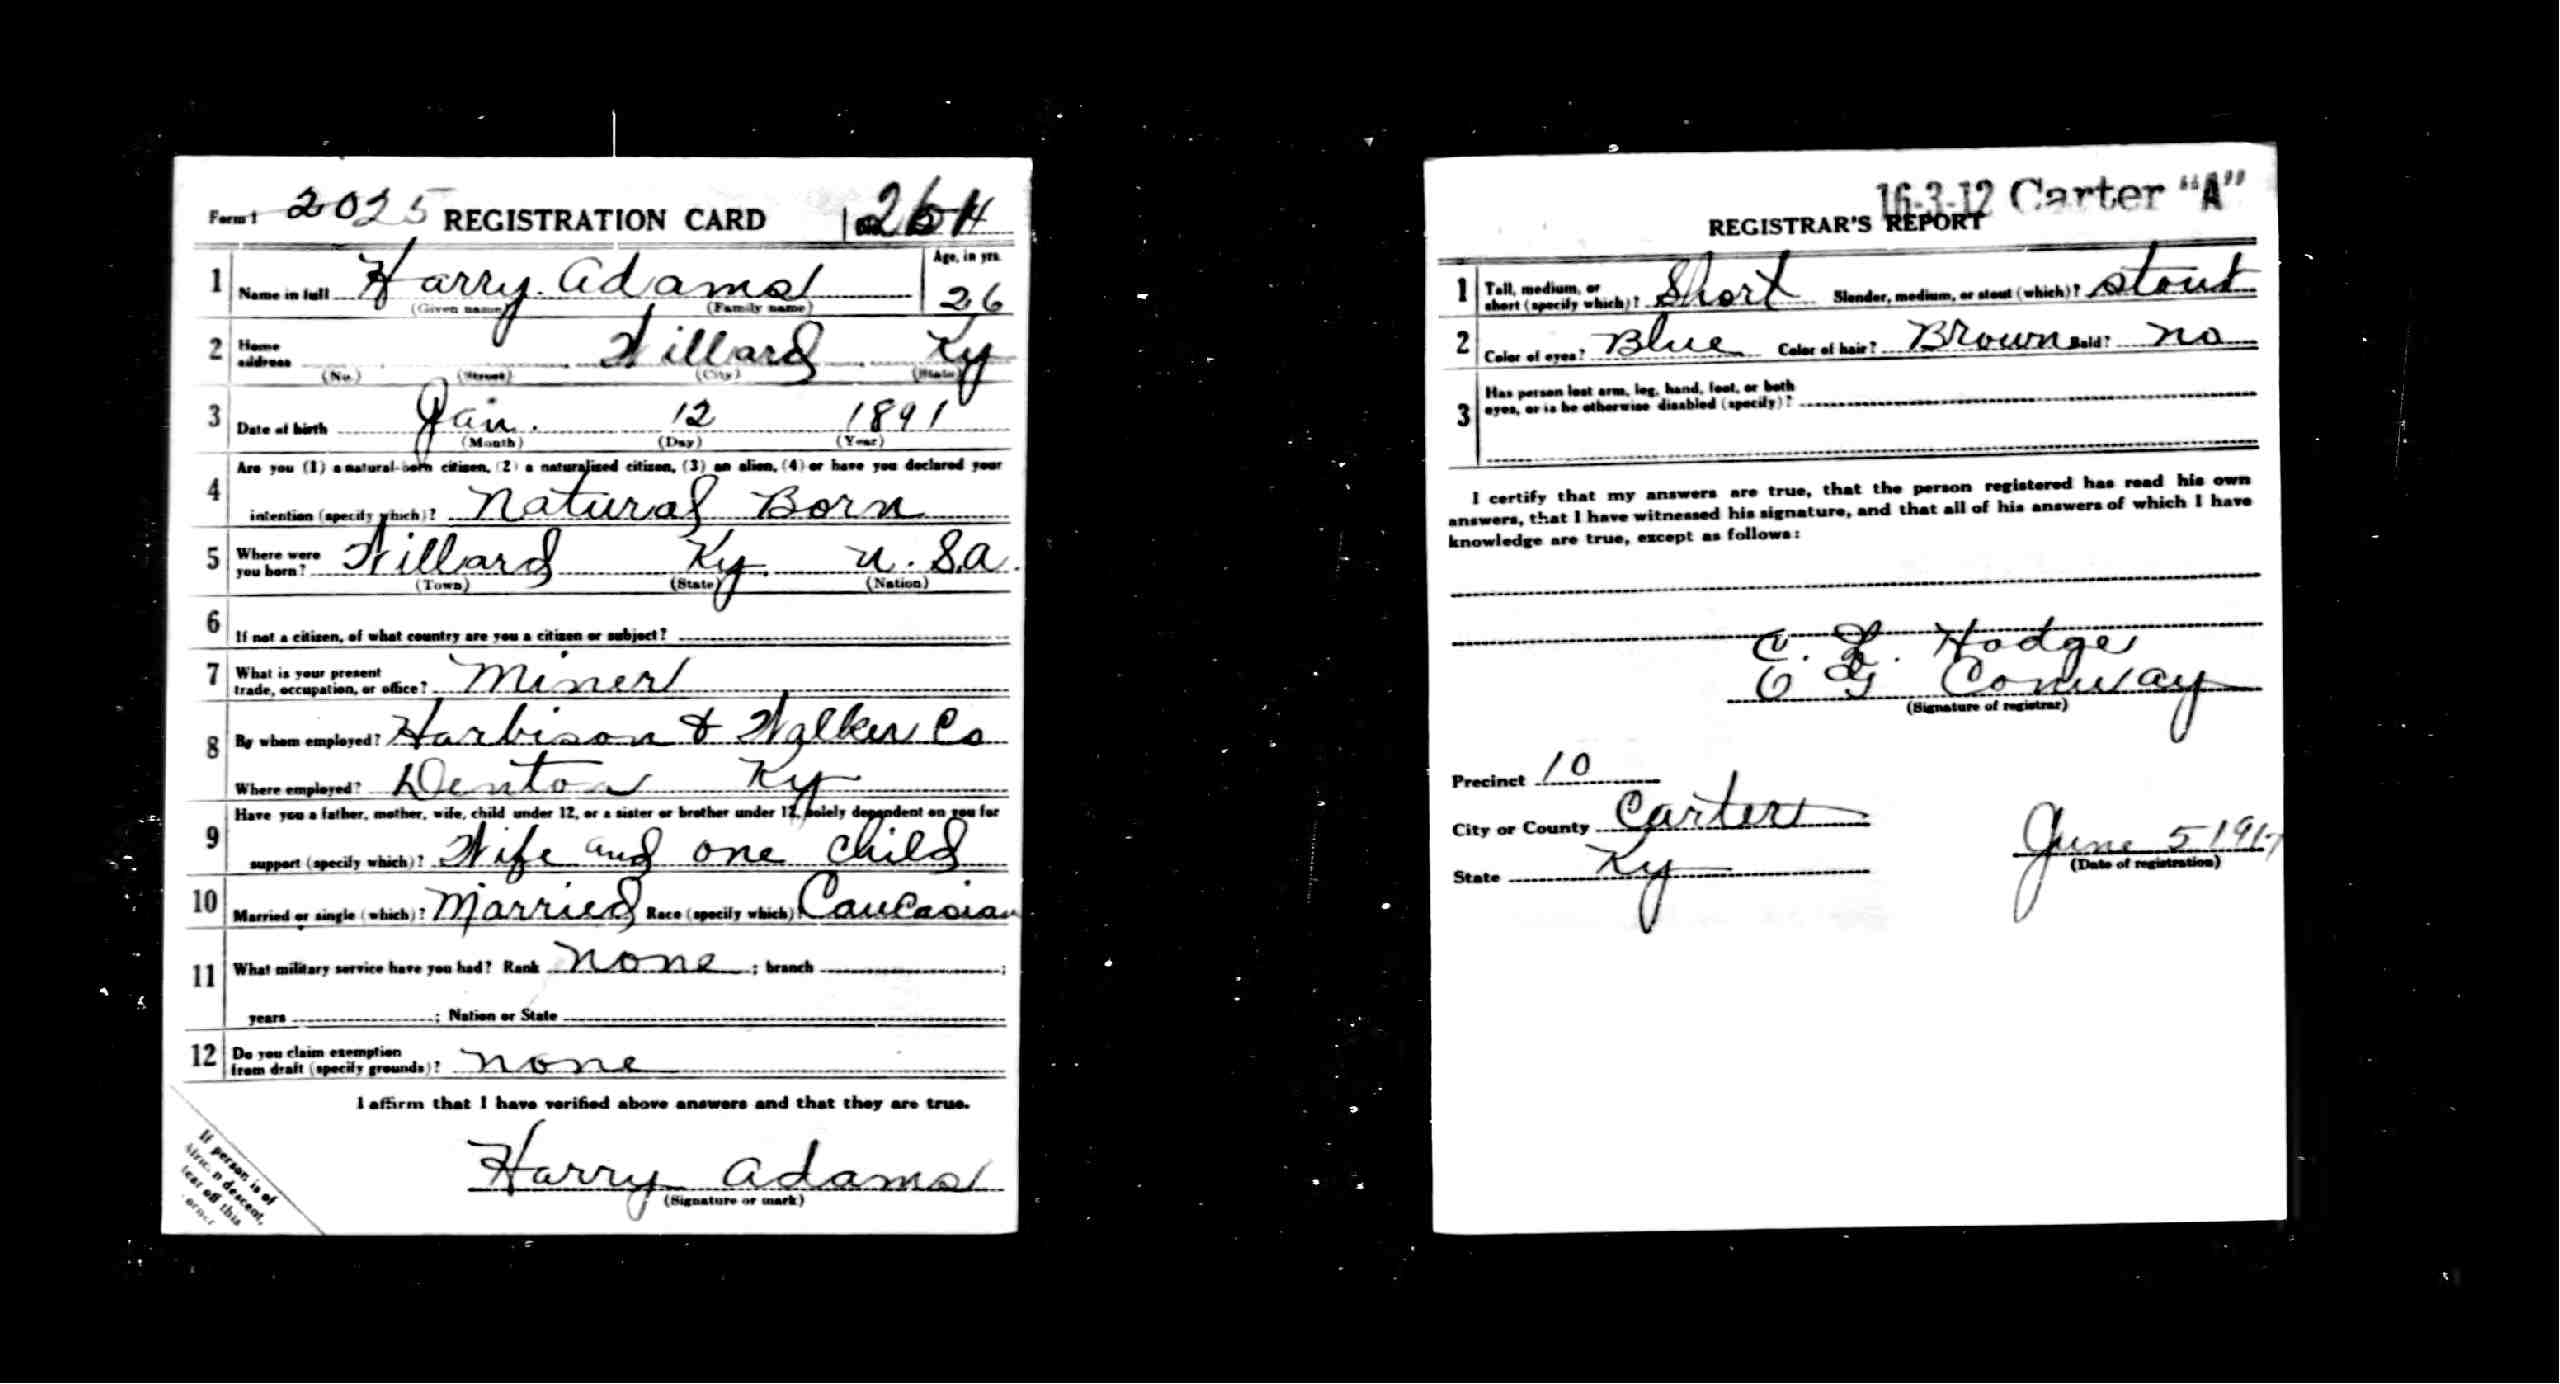 Form 1 2025 REGISTRATION CARD
1 Name in full Harry Adams Age, in yrs. 26
(Given name) (Family name)
2 Home address Willard Ky
(No.) (Street) (City) (State)
3 Date of birth Jan. 12 1891
(Month) (Day) (Year)
4 Are you (1) a natural-born citizen, (2) a naturalized citizen, (3) an alien, (4) or have you declared your
intention (specify which)? Natural Born
5 Where were you born? Willard Ky. U.S.A.
(Town) (State) (Nation)
6 If not a citizen, of what country are you a citizen or subject?
7 What is your present
trade, occupation, or office? Miner
8 By whom employed? Harbison & Walker Co
Where employed? Denton Ky
9 Have you a father, mother, wife, child under 12, or a sister or brother under 12, solely dependent on you for
support (specify which)? Wife and one child
10 Married or single (which)? Married Race (specify which)? Caucasian
11 What military service have you had? Rank None ; branch ;
years ; Nation or State
12 Do you claim exemption
from draft (specify grounds)? None
I affirm that I have verified above answers and that they are true.
Harry Adams
(Signature or mark)
If person is of
descent,
tear off this
corner
16-3-12 Carter "A"
REGISTRAR'S REPORT
1 Tall, medium, or
short (specify which)? Short Slender, medium, or stout (which)? Stout
2 Color of eyes? Blue Color of hair? Brown Bald? No
3 Has person lost arm, leg, hand, foot, or both
eyes, or is he otherwise disabled (specify)?
I certify that my answers are true, that the person registered has read his own
answers, that I have witnessed his signature, and that all of his answers of which I have
knowledge are true, except as follows:
Hodge
E G Conway
(Signature of registrar)
Precinct 10
City or County Carter
State Ky
June 5 1917
(Date of registration)